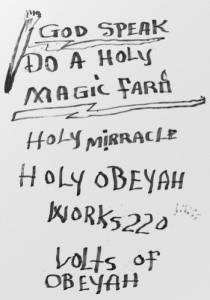 GOD SPEAK
DO A HOLY
MAGIC FARD
HOLY MIRRACLE
HOLY OBEYAH
WORKS220
VOLTS OF
OBEYAH